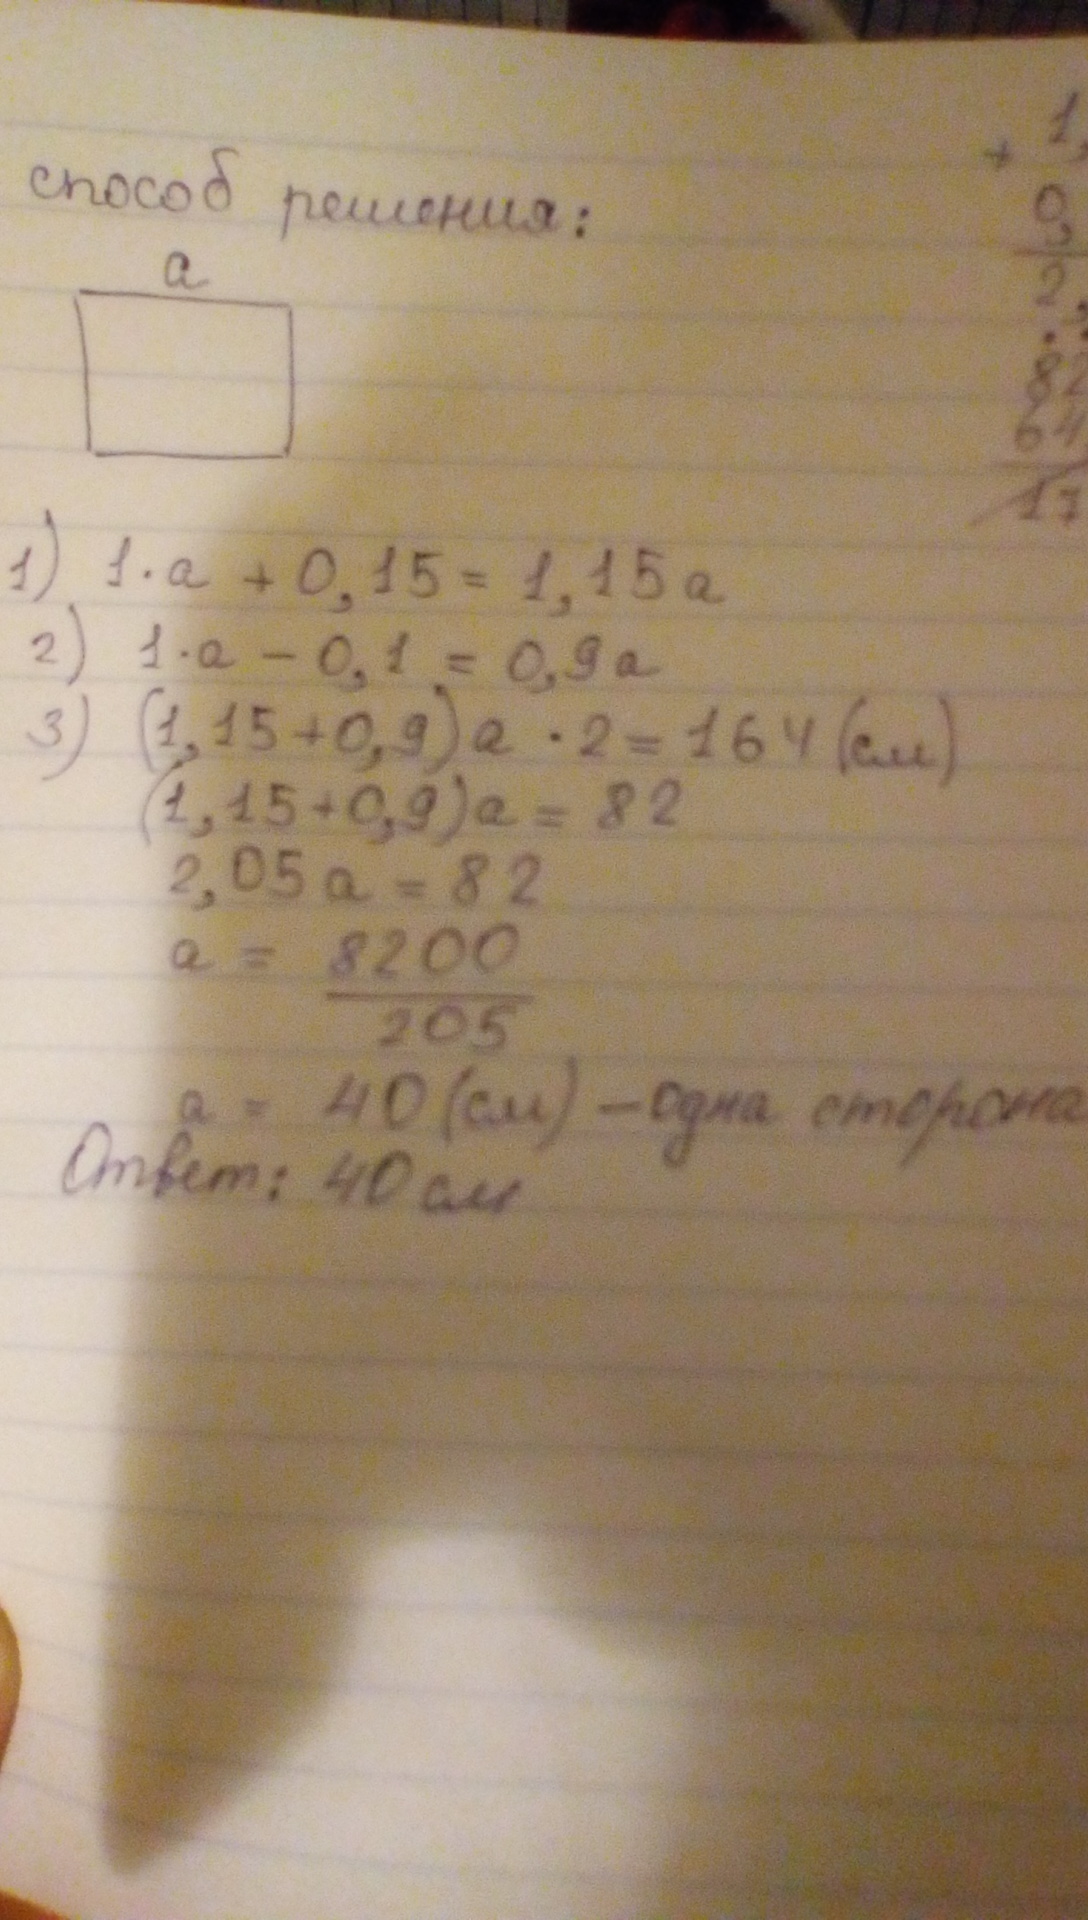 способ решения:
a
1) 1·a + 0,15 = 1,15a
2) 1·a - 0,1 = 0,9a
3) (1,15+0,9)a · 2 = 164 (см)
(1,15+0,9)a = 82
2,05a = 82
a = 8200
205
a = 40 (см) – одна сторона
Ответ: 40 см
+ 1,
0,
2,
82
64
17